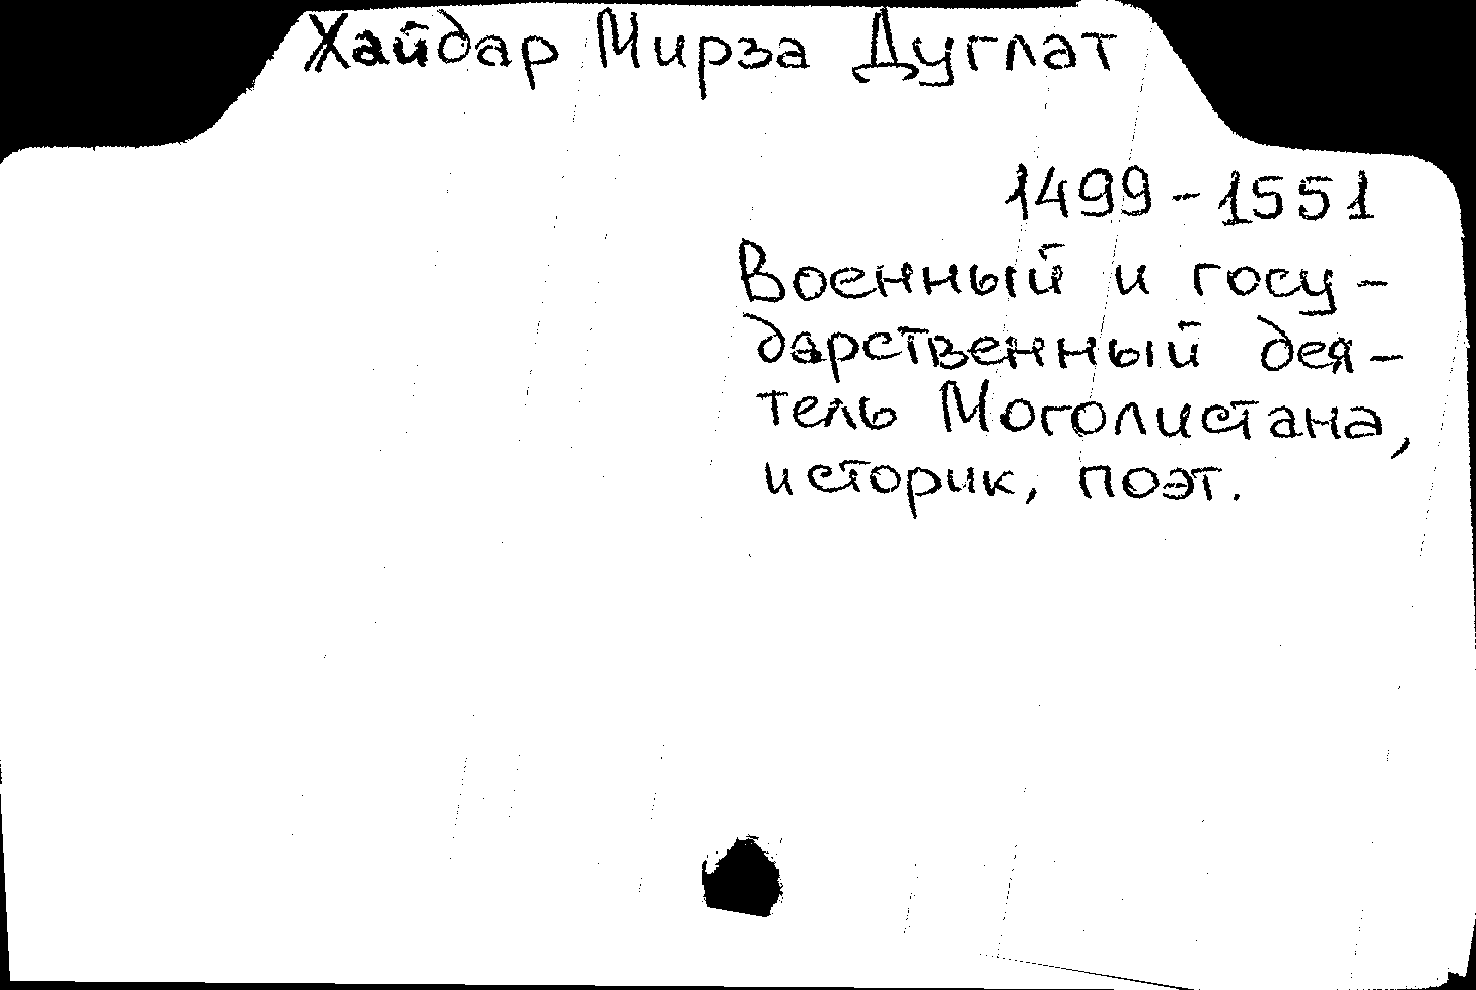 Хайдар Мирза Дуглат
1499-1551
Военный и госу-
дарственный дея-
тель Моголистана,
историк, поэт.